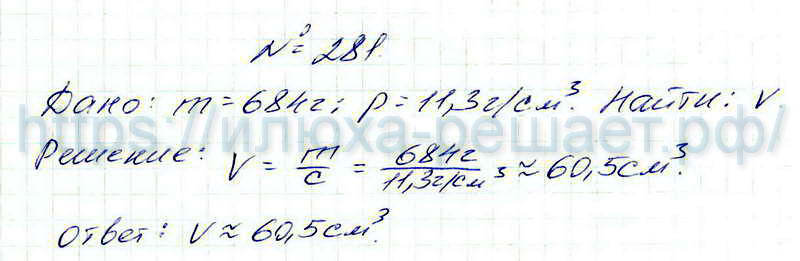 № 281.
Дано: m = 684г; ρ = 11,3г/см³. Найти: V.
https://илюха-решает.рф/
Решение: V = m/c = 684г/11,3г/см³ ≈ 60,5см³.
Ответ: V ≈ 60,5см³.